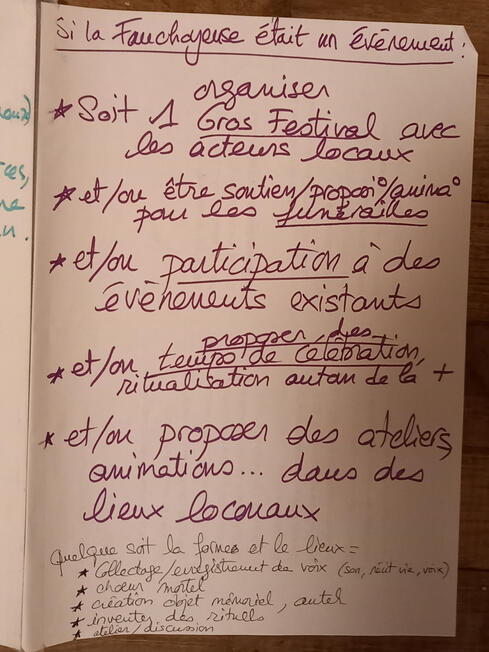 Si la Fauchoyeuse était un évènement :
organiser
★ Soit 1 Gros Festival avec
les acteurs locaux
★ et/ou être soutien/proposi°/anima°
pour les funérailles
★ et/ou participation à des
évènements existants
proposer des
★ et/ou temps de célébration,
ritualisation autour de la +
★ et/ou proposer des ateliers,
animations... dans des
lieux loconaux
Quelque soit la forme et le lieux =
★ Collectage/enregistrement de voix (son, récit vie, voix)
★ chœur mortel
★ création objet mémoriel, autel
★ inventer des rituels
★ atelier/discussion
ces,
ne
n.